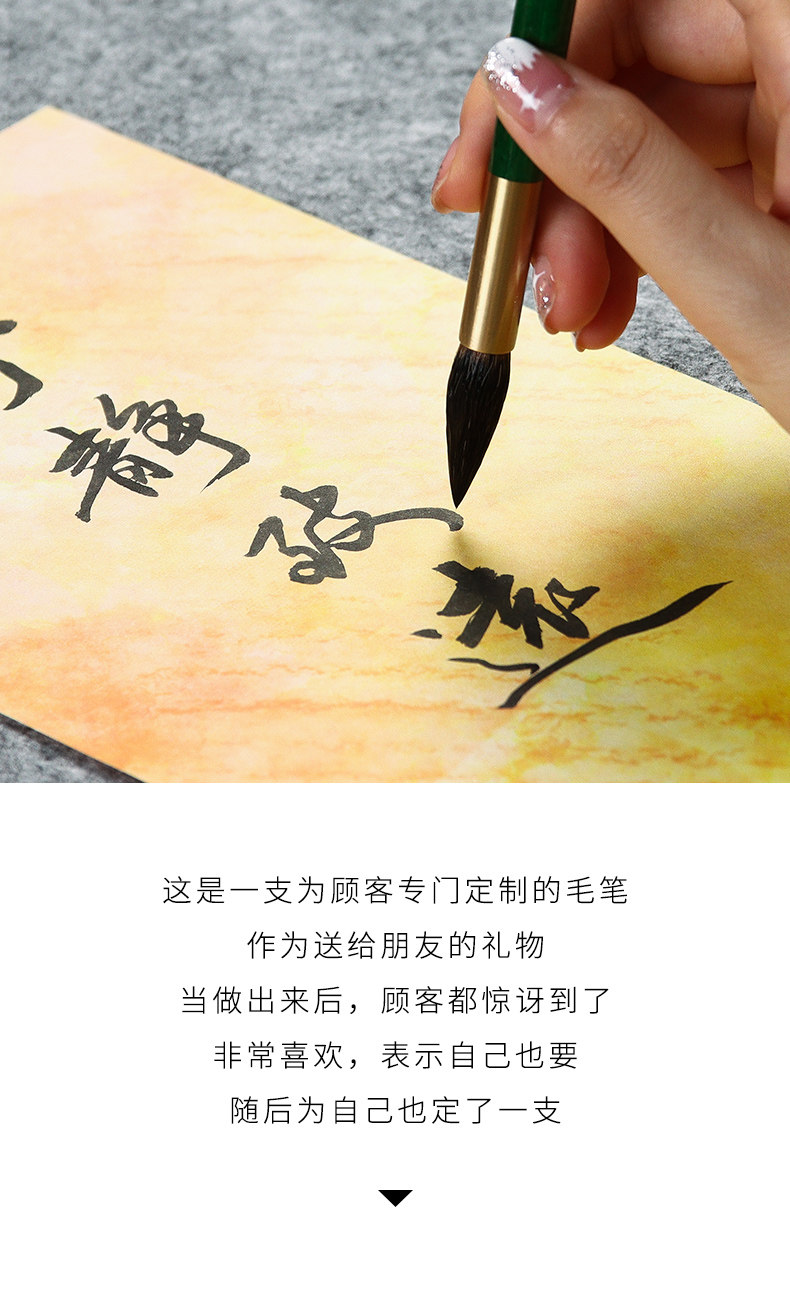 静致遠
这是一支为顾客专门定制的毛笔
作为送给朋友的礼物
当做出来后，顾客都惊讶到了
非常喜欢，表示自己也要
随后为自己也定了一支